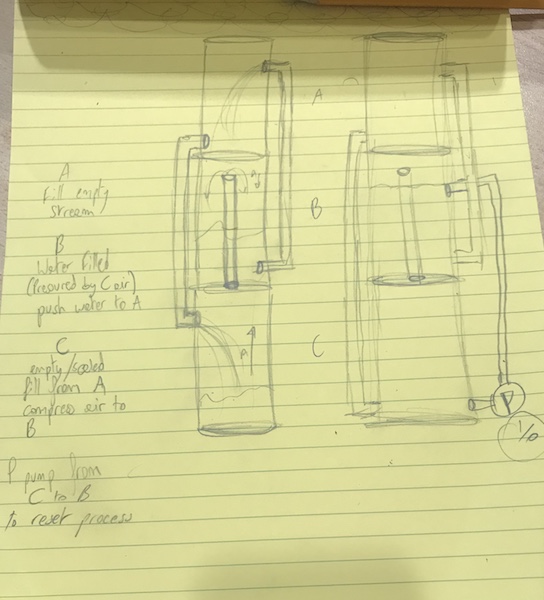 A
fill empty
stream
B
Water filled
(Presured by C air)
push water to A
C
empty/sealed
fill from A
compress air to
B
P pump from
C to B
to reset process
A
B
C
P
1/0